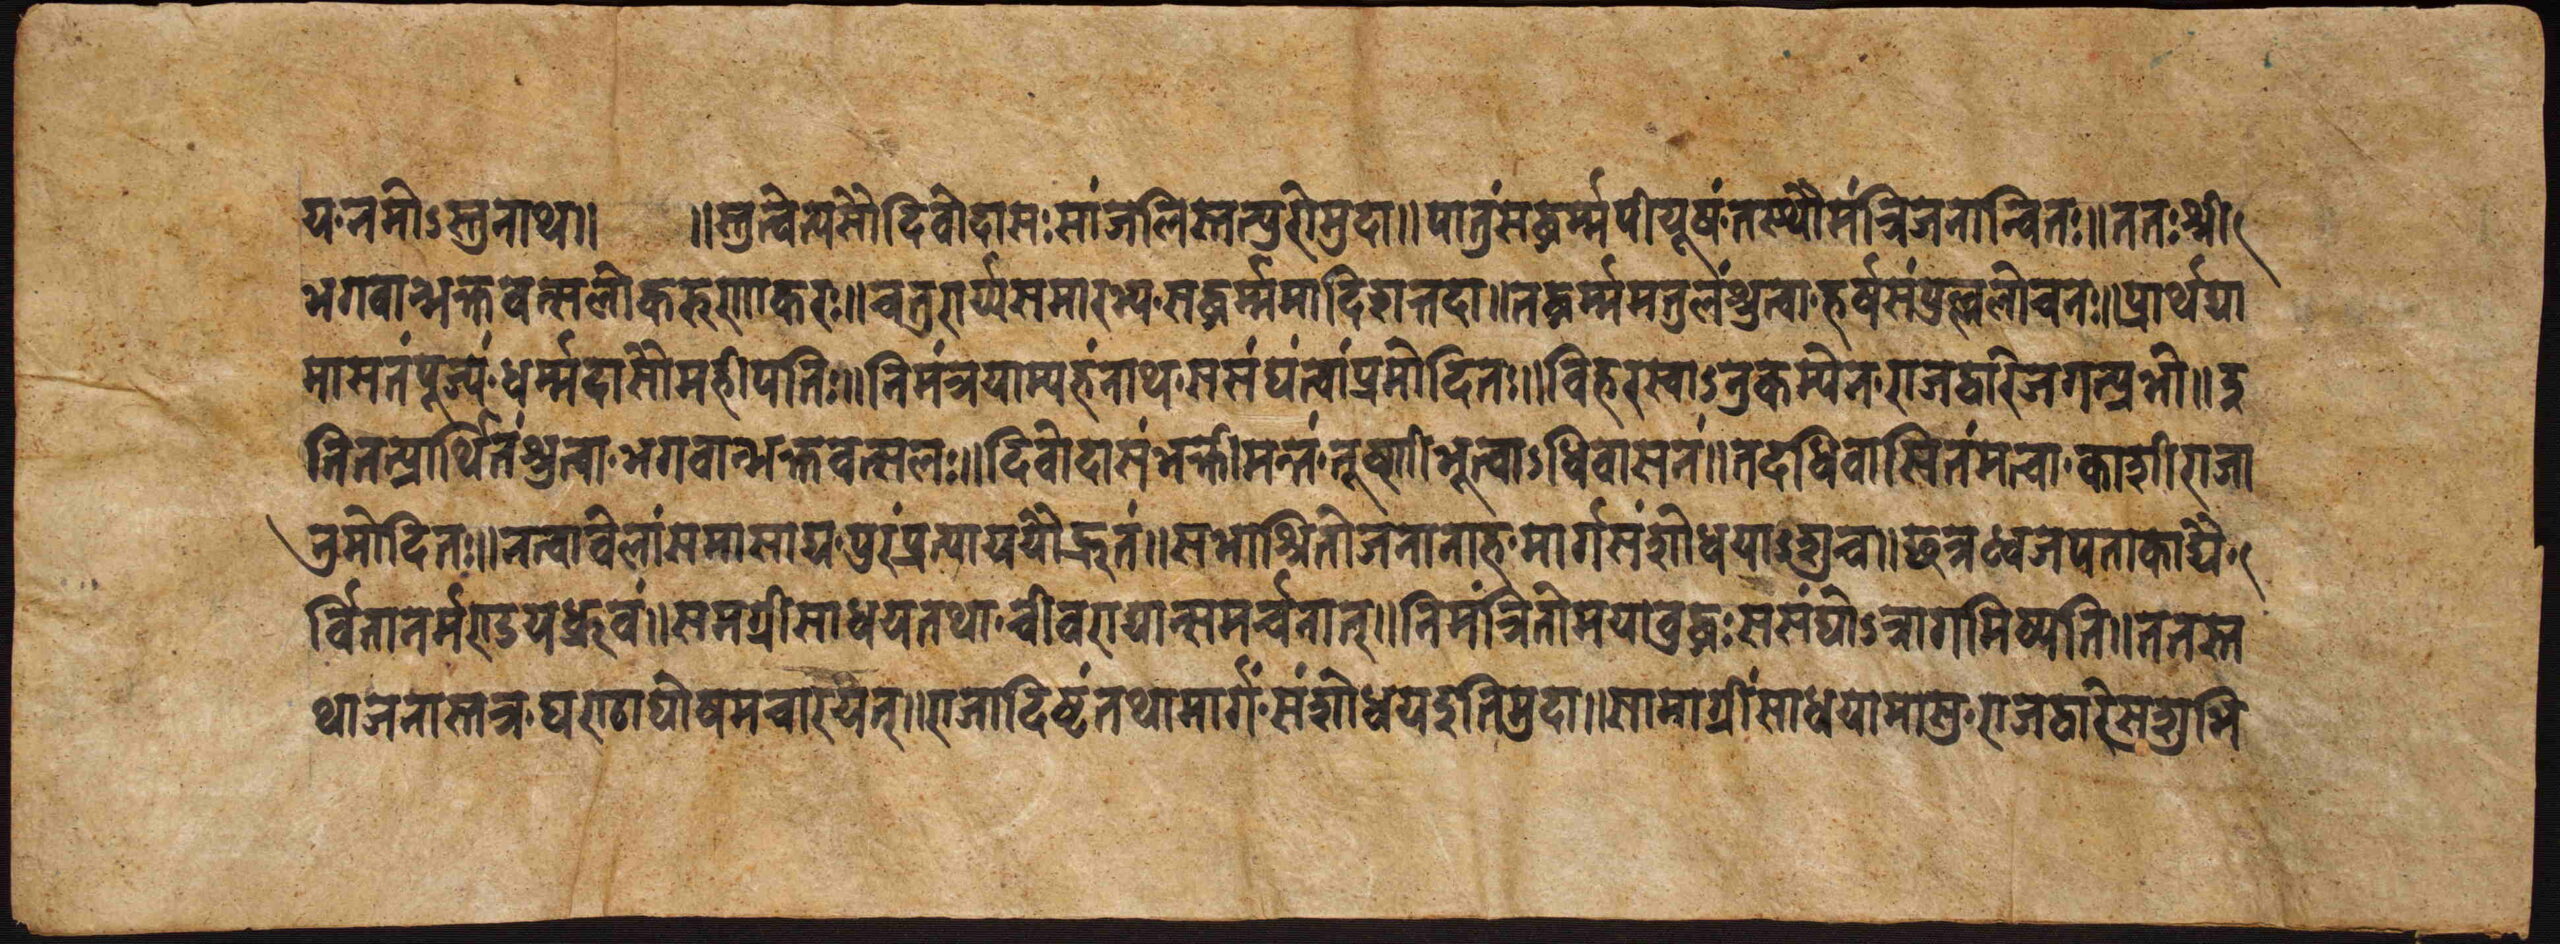 य नमोऽस्तु नाथ॥ ॥स्तुत्वेत्यसौ दिवोदासः सांजलिस्तत्पुरो मुदा॥ पातुं सद्धर्म्मपीयूषं तस्थौ मंत्रिजनान्वितः॥ ततः श्री
भगवान्भक्तवत्सलो करुणाकरः॥ चतुरार्य्यसमारभ्य सद्धर्म्ममादिशत्तदा॥ तद्धर्म्ममतुलं श्रुत्वा हर्षसंफुल्ललोचनः॥ प्रार्थया
मास तं पूज्यं धर्म्मदासौ महीपतिः॥ निमंत्रयाम्यहं नाथ ससंघं त्वां प्रमोदितः॥ विहरस्वाऽनुकम्पेन राजद्वारि जगत्प्रभो॥ इ
ति तत्प्रार्थितं श्रुत्वा भगवान्भक्तवत्सलः॥ दिवोदासं भक्तिमन्तं तूष्णीभूत्वाऽधिवासनं॥ तदधिवासितं मत्वा काशीराजा
नुमोदितः॥ नत्वा वेलां समासाद्य पुरं प्रत्याययौ द्रुतं॥ सभाश्रितो जनानाह मार्गसंशोधयाऽशु च॥ छत्रध्वजपताकाद्यै
र्वितानैर्मराडयध्रुवं॥ समग्रीं साधय तथा चीवराद्यान्समर्चनान्॥ निमंत्रितो मया बुद्धः ससंघोऽत्रागमिष्यति॥ ततस्त
था जनास्तत्र घराठाघोषमचारयन्॥ राजादिष्टं तथा मार्गं संशोधयदुति मुदा॥ सामाग्रीं साधयामासु राजद्वारि सशुभि